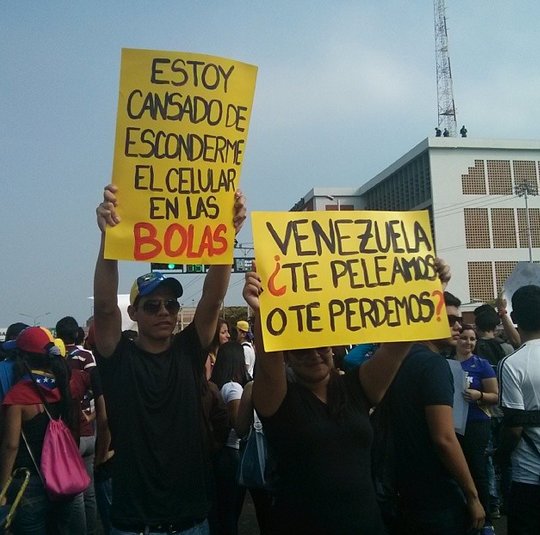 ESTOY
CANSADO DE
ESCONDERME
EL CELULAR
EN LAS
BOLAS
VENEZUELA
¿TE PELEAMOS
O TE PERDEMOS?